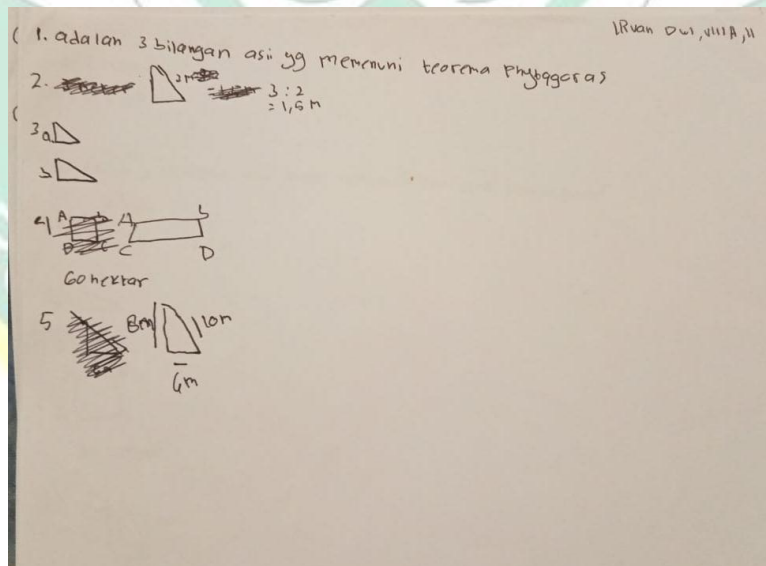 IRvan Dwi, VIIIA, 11
1. adalah 3 bilangan asli yg memenuhi teorema Phytagoras
2. 2m 3 : 2
= 1,5 m
3 a
b
4 A b
C D
60 hektar
5 8m 10m
6m